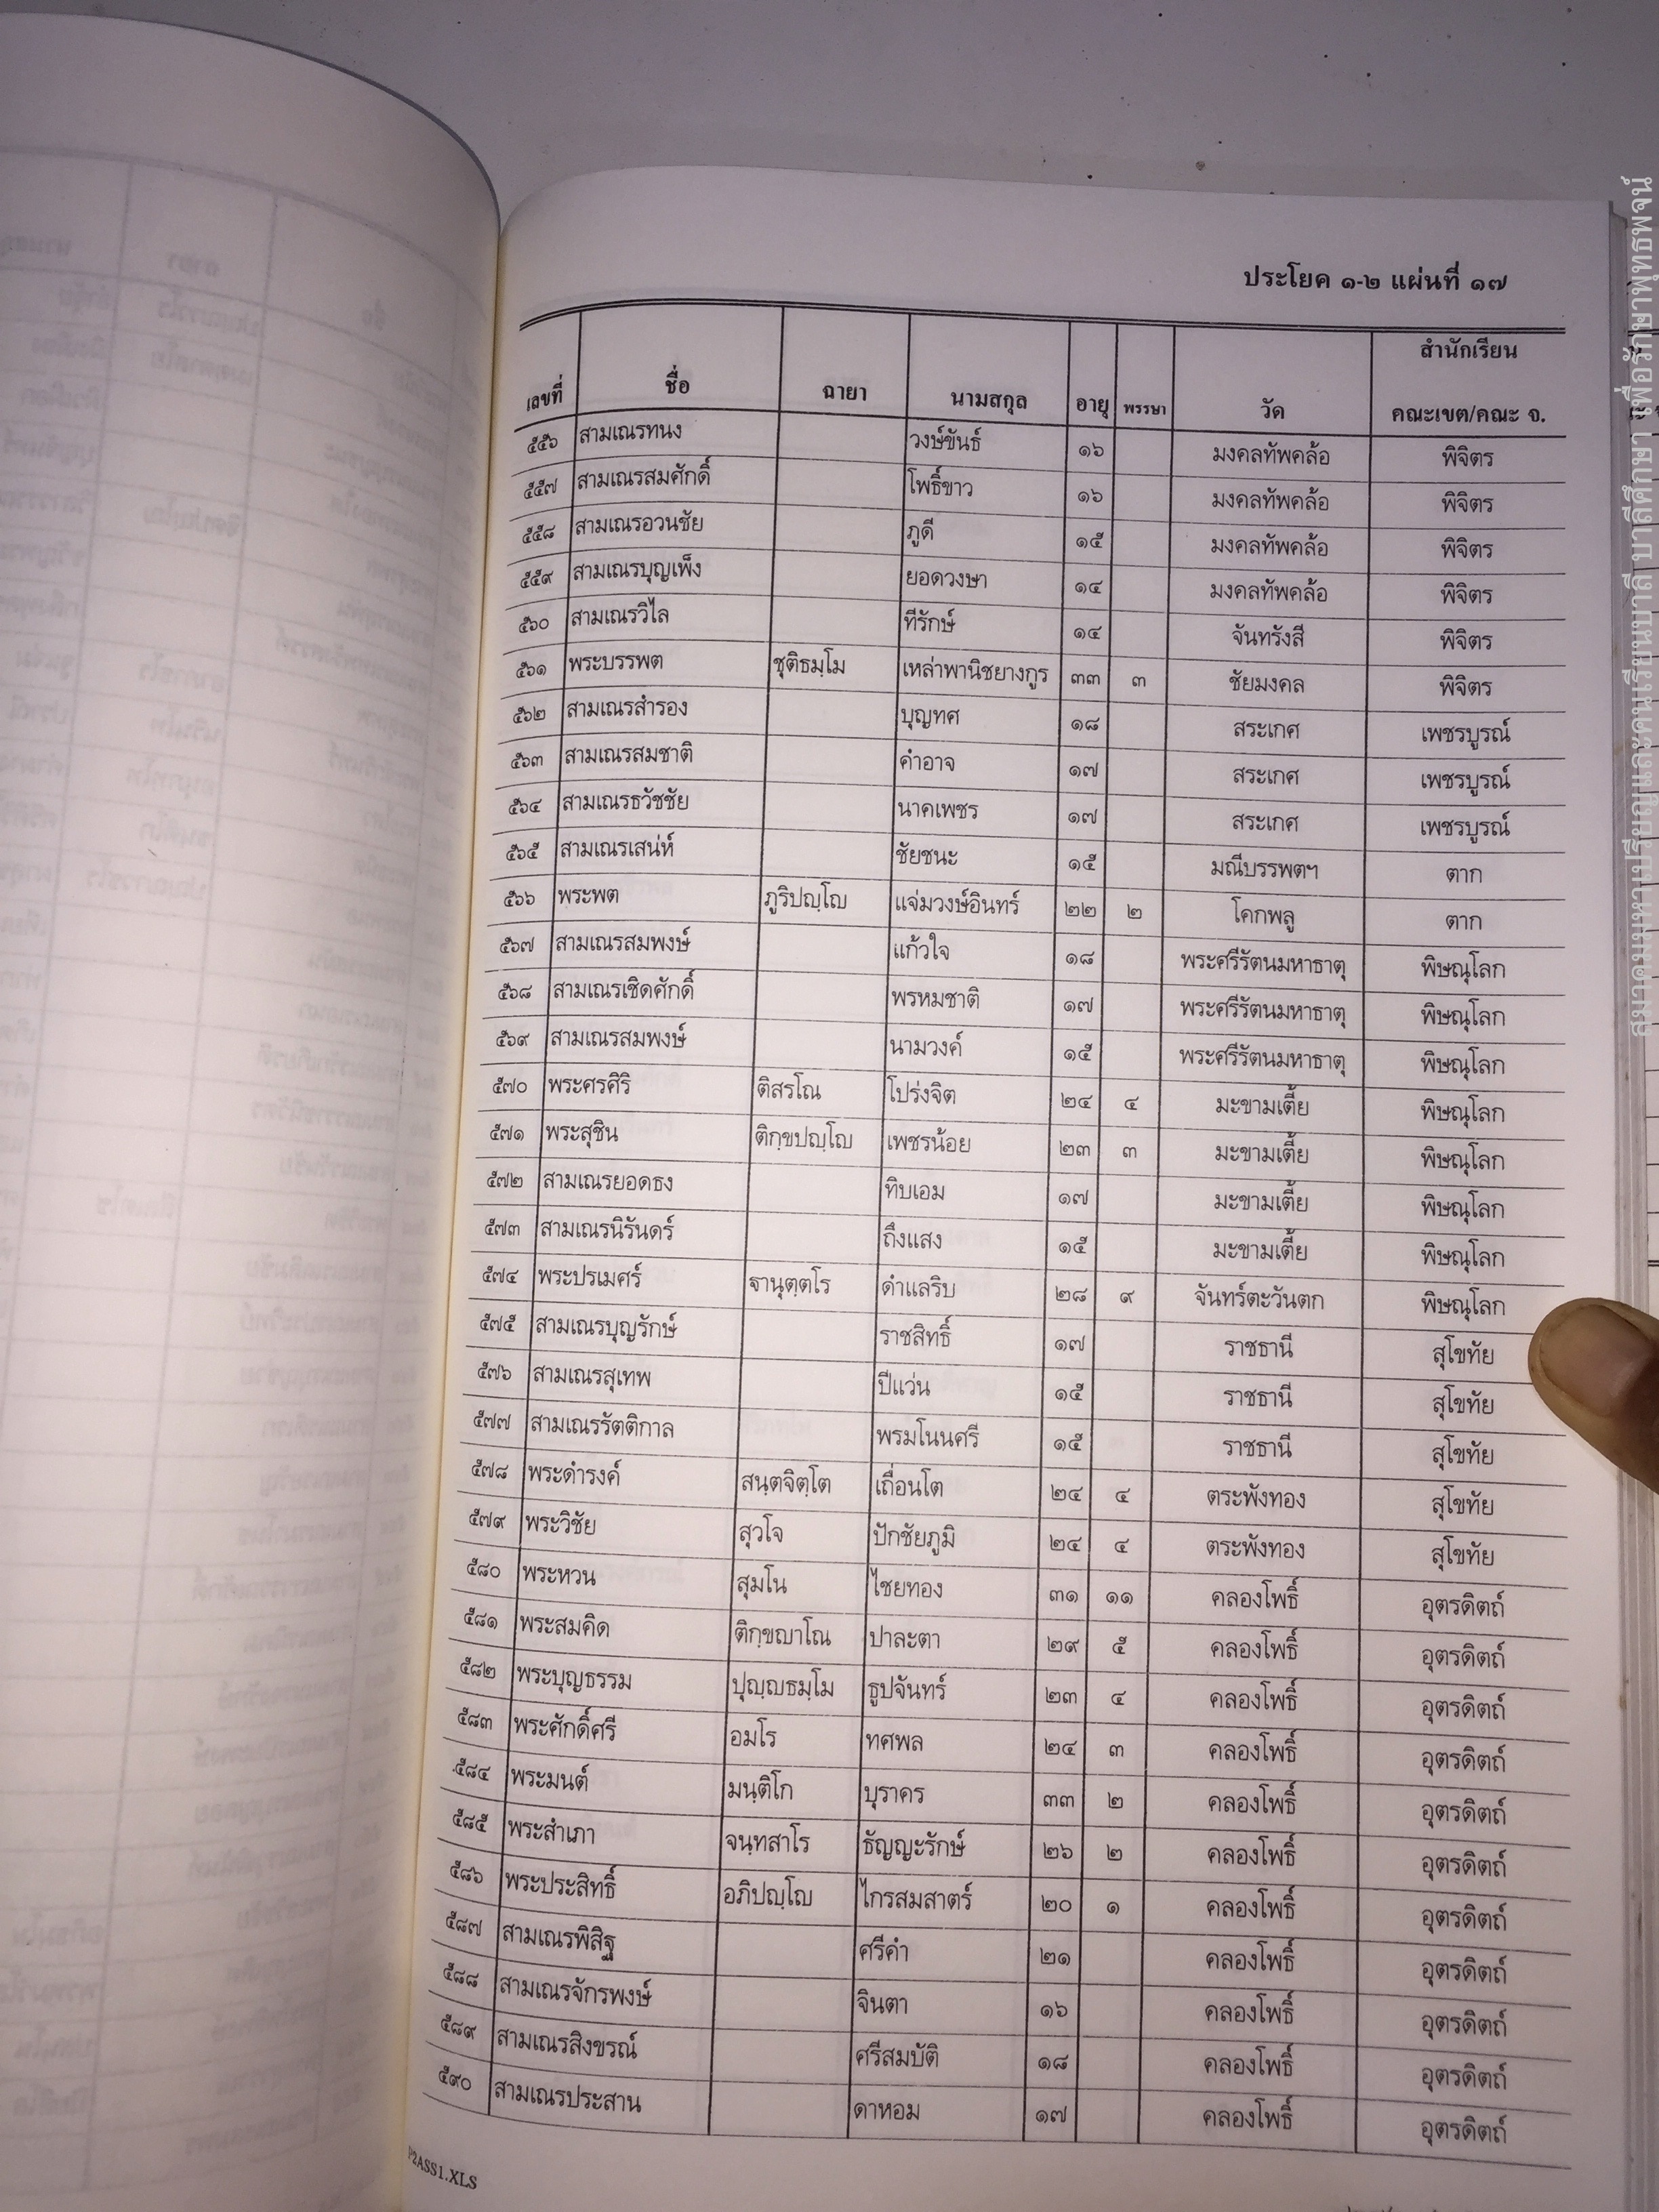 ประโยค ๑-๒ แผ่นที่ ๑๗
เลขที่ ชื่อ ฉายา นามสกุล อายุ พรรษา วัด สำนักเรียน คณะเขต/คณะ จ.
๕๕๖ สามเณรทนง วงษ์ขันธ์ ๑๖ มงคลทัพคล้อ พิจิตร
๕๕๗ สามเณรสมศักดิ์ โพธิ์ขาว ๑๖ มงคลทัพคล้อ พิจิตร
๕๕๘ สามเณรอวนชัย ภูดี ๑๕ มงคลทัพคล้อ พิจิตร
๕๕๙ สามเณรบุญเพ็ง ยอดวงษา ๑๔ มงคลทัพคล้อ พิจิตร
๕๖๐ สามเณรวิไล ทีรักษ์ ๑๔ จันทรังสี พิจิตร
๕๖๑ พระบรรพต ชุติธมฺโม เหล่าพานิชยางกูร ๓๓ ๓ ชัยมงคล พิจิตร
๕๖๒ สามเณรสำรอง บุญทศ ๑๘ สระเกศ เพชรบูรณ์
๕๖๓ สามเณรสมชาติ คำอาจ ๑๗ สระเกศ เพชรบูรณ์
๕๖๔ สามเณรธวัชชัย นาคเพชร ๑๗ สระเกศ เพชรบูรณ์
๕๖๕ สามเณรเสน่ห์ ชัยชนะ ๑๕ มณีบรรพตฯ ตาก
๕๖๖ พระพต ภูริปญฺโญ แจ่มวงษ์อินทร์ ๒๒ ๒ โคกพลู ตาก
๕๖๗ สามเณรสมพงษ์ แก้วใจ ๑๘ พระศรีรัตนมหาธาตุ พิษณุโลก
๕๖๘ สามเณรเชิดศักดิ์ พรหมชาติ ๑๗ พระศรีรัตนมหาธาตุ พิษณุโลก
๕๖๙ สามเณรสมพงษ์ นามวงค์ ๑๕ พระศรีรัตนมหาธาตุ พิษณุโลก
๕๗๐ พระศรศิริ ติสรโณ โปร่งจิต ๒๔ ๔ มะขามเตี้ย พิษณุโลก
๕๗๑ พระสุชิน ติกฺขปญฺโญ เพชรน้อย ๒๓ ๓ มะขามเตี้ย พิษณุโลก
๕๗๒ สามเณรยอดธง ทิบเอม ๑๗ มะขามเตี้ย พิษณุโลก
๕๗๓ สามเณรนิรันดร์ ถึงแสง ๑๕ มะขามเตี้ย พิษณุโลก
๕๗๔ พระปรเมศร์ ฐานุตฺตโร ดำแลริบ ๒๘ ๙ จันทร์ตะวันตก พิษณุโลก
๕๗๕ สามเณรบุญรักษ์ ราชสิทธิ์ ๑๗ ราชธานี สุโขทัย
๕๗๖ สามเณรสุเทพ ปีแว่น ๑๕ ราชธานี สุโขทัย
๕๗๗ สามเณรรัตติกาล พรมโนนศรี ๑๕ ราชธานี สุโขทัย
๕๗๘ พระดำรงค์ สนฺตจิตฺโต เถื่อนโต ๒๔ ๔ ตระพังทอง สุโขทัย
๕๗๙ พระวิชัย สุวโจ ปักชัยภูมิ ๒๔ ๔ ตระพังทอง สุโขทัย
๕๘๐ พระหวน สุมโน ไชยทอง ๓๑ ๑๑ คลองโพธิ์ อุตรดิตถ์
๕๘๑ พระสมคิด ติกฺขญาโณ ปาละตา ๒๙ ๕ คลองโพธิ์ อุตรดิตถ์
๕๘๒ พระบุญธรรม ปุญฺญธมฺโม ธูปจันทร์ ๒๓ ๔ คลองโพธิ์ อุตรดิตถ์
๕๘๓ พระศักดิ์ศรี อมโร ทศพล ๒๔ ๓ คลองโพธิ์ อุตรดิตถ์
๕๘๔ พระมนต์ มนฺติโก บุราคร ๓๓ ๒ คลองโพธิ์ อุตรดิตถ์
๕๘๕ พระสำเภา จนฺทสาโร ธัญญะรักษ์ ๒๖ ๒ คลองโพธิ์ อุตรดิตถ์
๕๘๖ พระประสิทธิ์ อภิปญฺโญ ไกรสมสาตร์ ๒๐ ๑ คลองโพธิ์ อุตรดิตถ์
๕๘๗ สามเณรพิสิฐ ศรีคำ ๒๑ คลองโพธิ์ อุตรดิตถ์
๕๘๘ สามเณรจักรพงษ์ จินตา ๑๖ คลองโพธิ์ อุตรดิตถ์
๕๘๙ สามเณรสิงขรณ์ ศรีสมบัติ ๑๘ คลองโพธิ์ อุตรดิตถ์
๕๙๐ สามเณรประสาน ดาหอม ๑๗ คลองโพธิ์ อุตรดิตถ์
P2ASS1.XLS
สมาคมมหาเปรียญและคนเรียนบาลี บาลีศึกษา เพื่อรักษาพุทธพจน์